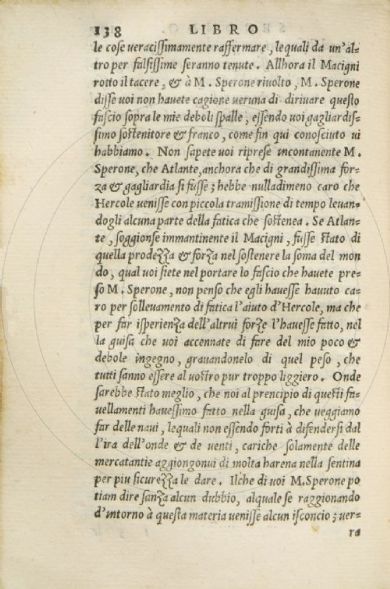 138 LIBRO
le cose veracissimamente raffermare, le quali da un'al-
tro per falsissime seranno tenute. Allhora il Macigni
rotto il tacere, & à M. Sperone rivolto, M. Sperone
disse voi non havete cagione veruna di dirivare questo
fascio sopra le mie deboli spalle, essendo voi gagliardis-
simo sostenitore & franco, come fin qui conosciuto vi
habbiamo. Non sapete voi riprese incontanente M.
Sperone, che Atlante, anchora che di grandissima for-
za & gagliardia si fusse; hebbe nulladimeno caro che
Hercole venisse con piccola tramissione di tempo levan-
dogli alcuna parte della fatica che sostenea. Se Atlan-
te, soggionse immantinente il Macigni, fusse stato di
quella prodezza & forza nel sostenere la soma del mon
do, qual voi siete nel portare lo fascio che havete pre-
so M. Sperone, non penso che egli havesse havuto ca-
ro per sollevamento di fatica l'aiuto d'Hercole, ma che
per far isperienza dell'altrui forze l'havesse fatto, nel
la guisa che voi accennate di fare del mio poco &
debole ingegno, gravandonelo di quel peso, che
tutti sanno essere al vostro pur troppo liggiero. Onde
sarebbe stato meglio, che noi al prencipio di questi fa-
vellamenti havessimo fatto nella guisa, che veggiamo
far delle navi, le quali non essendo forti à difendersi dal
l'ira dell'onde & de venti, cariche solamente delle
mercatantie aggiongonvi di molta harena nella sentina
per piu sicurezza le dare. Ilche di voi M. Sperone po
tiam dire sanza alcun dubbio, alquale se raggionando
d'intorno à questa materia venisse alcun isconcio; ver-
ra